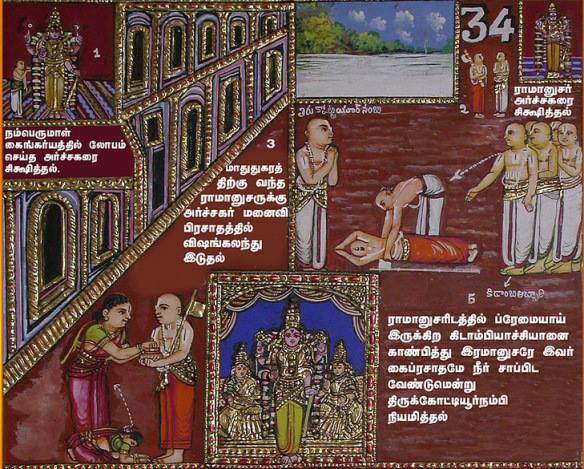 1
நம்பெருமாள்
கைங்கர்யத்தில் லோபம்
செய்த அர்ச்சகரை
சிக்ஷித்தல்.
34
2
ராமானுசர்
அர்ச்சகரை
சிக்ஷித்தல்
3
மாதுகரத்
திற்கு வந்த
ராமானுசருக்கு
அர்ச்சகர் மனைவி
பிரசாதத்தில்
விஷங்கலந்து
இடுதல்
5
ராமானுசரிடத்தில் ப்ரேமையாய்
இருக்கிற கிடாம்பியாச்சியானை
காண்பித்து இரமானுசரே இவர்
கைப்ரசாதமே நீர் சாப்பிட
வேண்டுமென்று
திருக்கோட்டியூர்நம்பி
நியமித்தல்